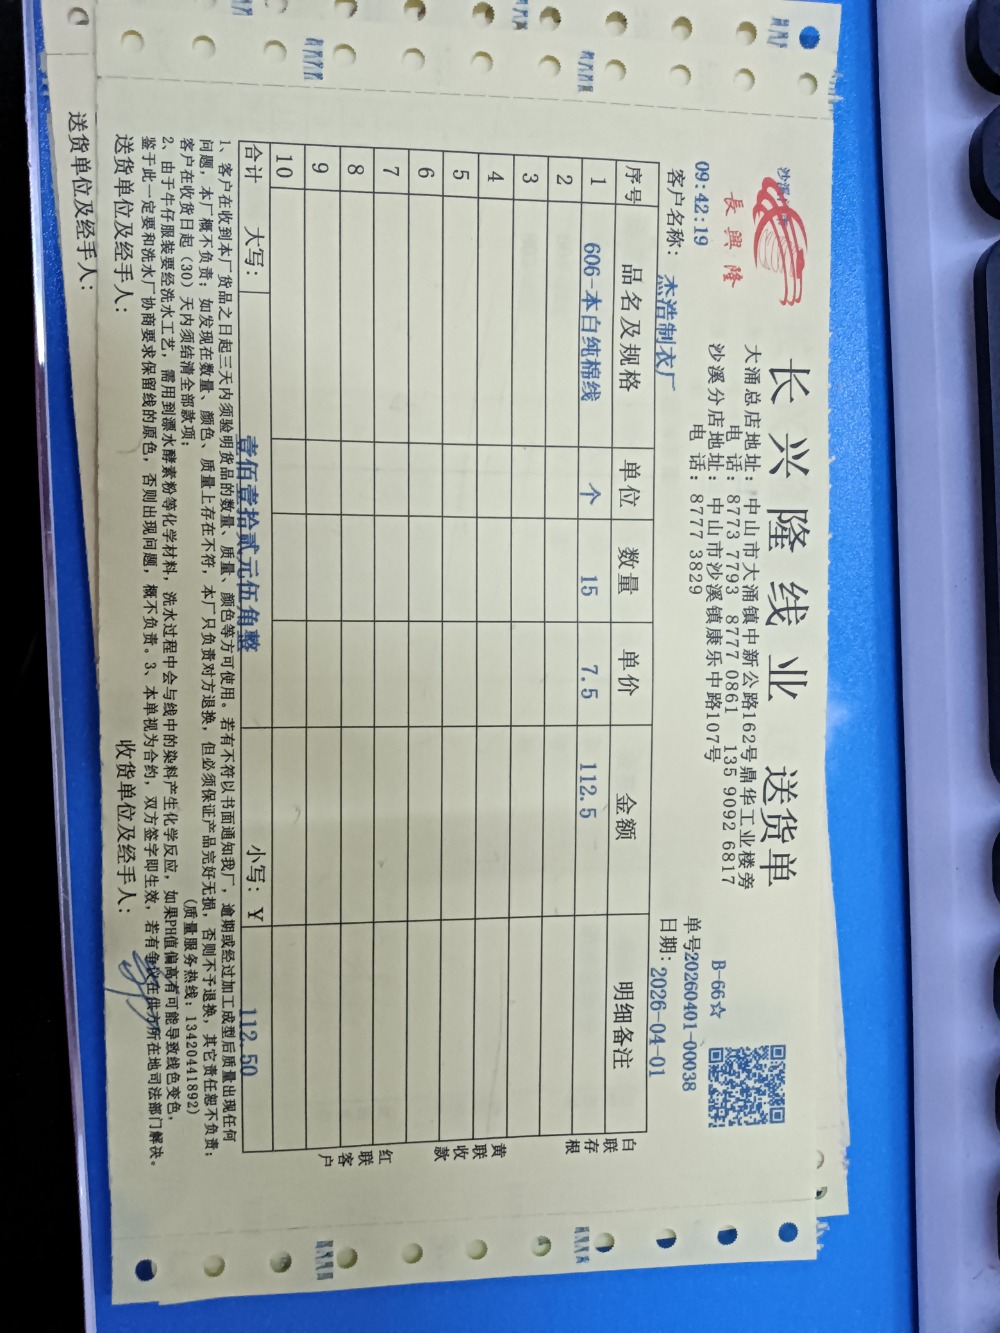 長興隆
长兴隆线业 送货单
B-66☆
大涌总店地址：中山市大涌镇中新公路162号鼎华工业楼旁
电 话：8773 7793 8777 0861 135 9092 6817
沙溪分店地址：中山市沙溪镇康乐中路107号
电 话：8777 3829
09:42:19
单号20260401-00038
客户名称：杰浩制衣厂
日期：2026-04-01
序号 品名及规格 单位 数量 单价 金额 明细备注
1 606-本白纯棉线 个 15 7.5 112.5
2
3
4
5
6
7
8
9
10
合计 大写：壹佰壹拾贰元伍角整 小写：¥ 112.50
白联存根
黄联收款
红联客户
1、客户在收到本厂货品之日起三天内须验明货品的数量、质量、颜色等方可使用。若有不符以书面通知我厂，逾期或经过加工成型后质量出现任何
问题，本厂概不负责；如发现在数量、颜色、质量上存在不符，本厂只负责对方退换，但必须保证产品完好无损，否则不予退换，其它责任恕不负责；
客户在收货日起（30）天内须结清全部款项； (质量服务热线：13420441892)
2、由于牛仔服装要经洗水工艺，需用到漂水酵素粉等化学材料，洗水过程中会与线中的染料产生化学反应，如果PH值偏高有可能导致线色变色，
鉴于此一定要和洗水厂协商要求保留线的原色，否则出现问题，概不负责。3、本单视为合约，双方签字即生效，若有争议在供方所在地司法部门解决。
送货单位及经手人： 收货单位及经手人：
送货单位及经手人：